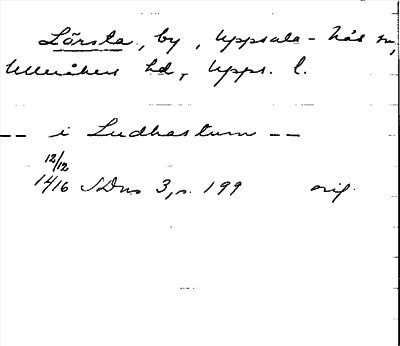 Lörsta, by, Uppsala-Näs sn,
Ulleråkers hd, Upps. l.
-- i Ludhastum --
12/12
1416 SDns 3, s. 199 orig.